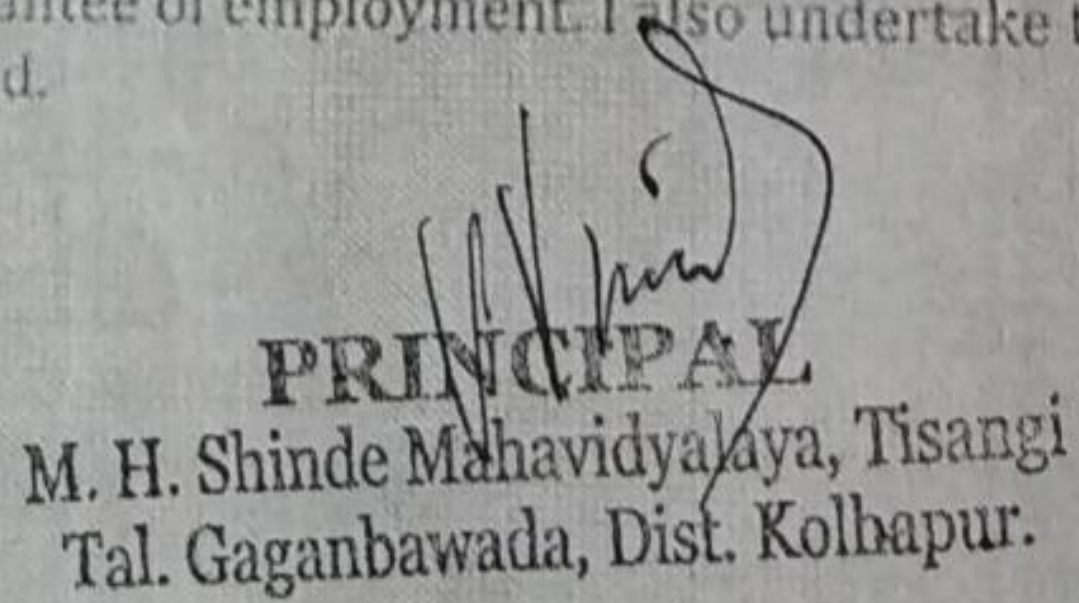 of employment. I also undertake
d.
PRINCIPAL
M. H. Shinde Mahavidyalaya, Tisangi
Tal. Gaganbawada, Dist. Kolhapur.